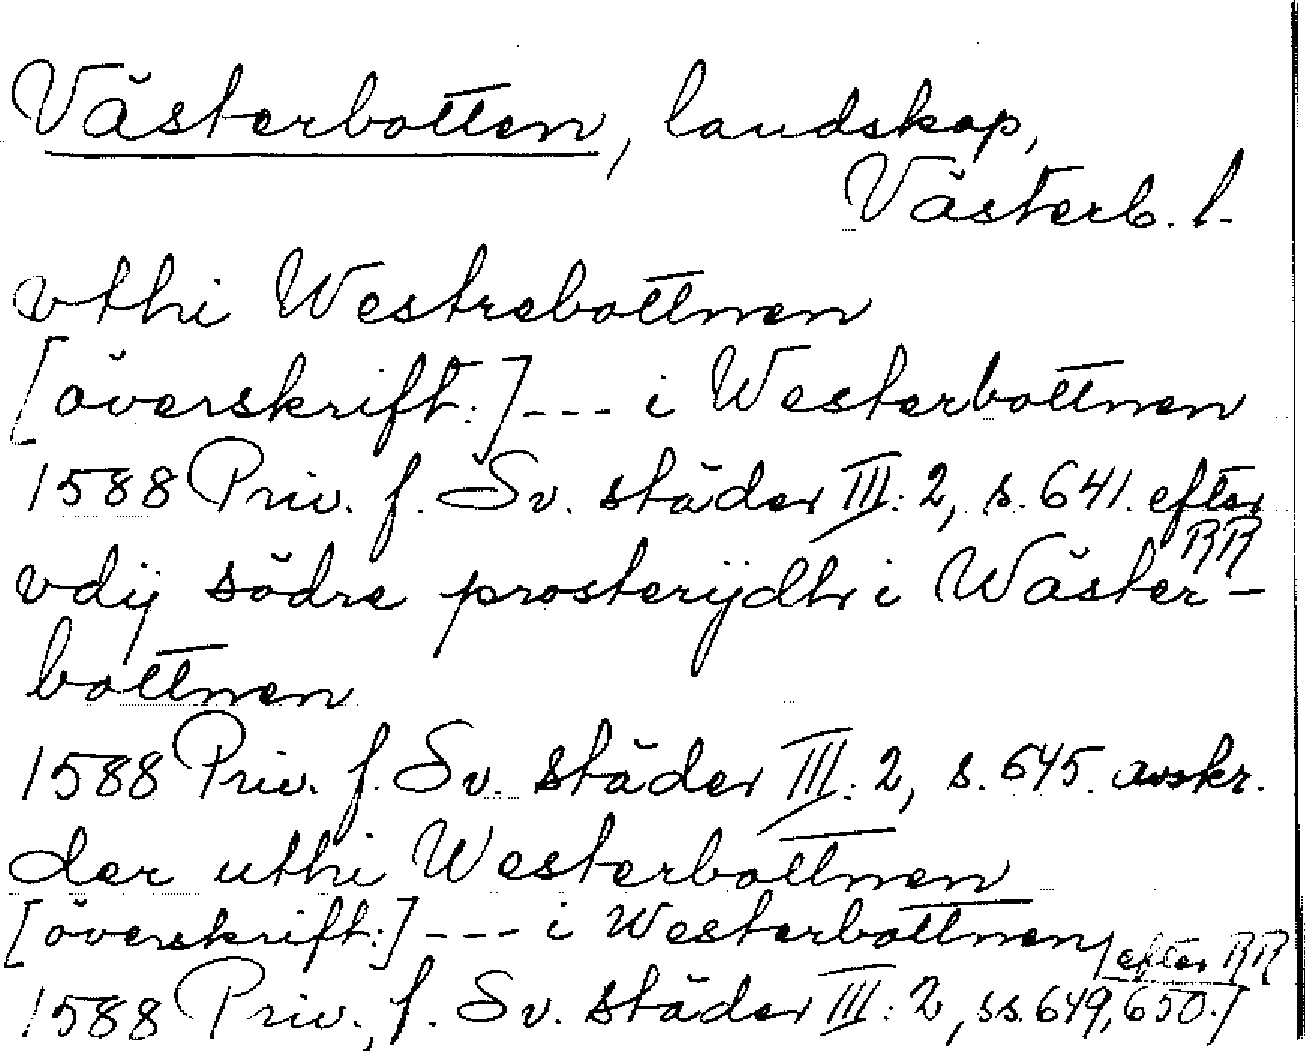 Västerbotten, landskap,
Västerb. l.
vthi Westrebottnen
[överskrift:] --- i Westerbottnen
1588 Priv. f. Sv. städer III: 2, s. 641. efter RR
vdij södre prosterijdhr i Wäster-
bottnen
1588 Priv. f. Sv. städer III: 2, s. 645. avskr.
der uthi Westerbottnen
[överskrift:] --- i Westerbottnen
1588 Priv. f. Sv. städer III: 2, ss. 649, 650. efter RR